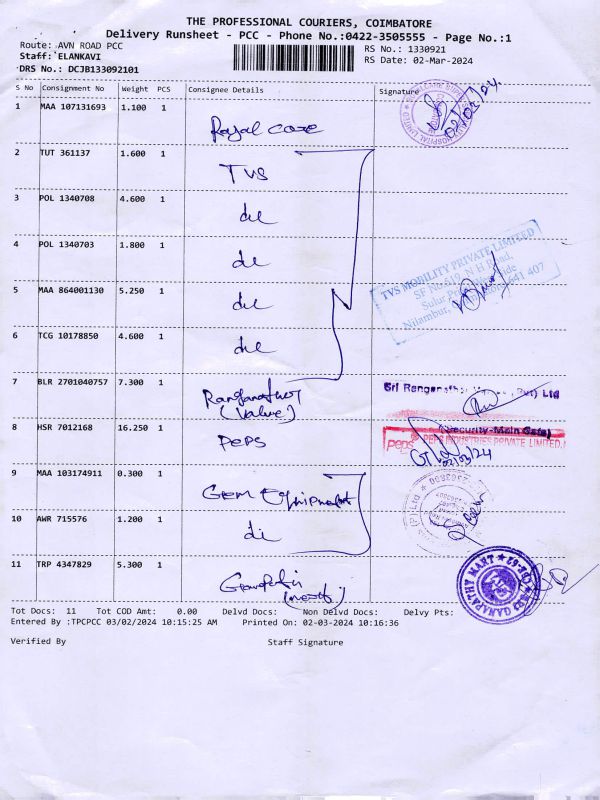 THE PROFESSIONAL COURIERS, COIMBATORE
Delivery Runsheet - PCC - Phone No.:0422-3505555 - Page No.:1
Route: AVN ROAD PCC RS No.: 1330921
Staff: ELANKAVI RS Date: 02-Mar-2024
DRS No.: DCJB133092101
S No Consignment No Weight PCS Consignee Details Signature
1 MAA 107131693 1.100 1 Royal care 02/03/24
2 TUT 361137 1.600 1 TVS
3 POL 1340708 4.600 1 do
4 POL 1340703 1.800 1 do
TVS MOBILITY PRIVATE LIMITED
SF No 619, N H Road,
Sulur
Nilambur, 641 407
5 MAA 864001130 5.250 1 do
6 TCG 10178850 4.600 1 do
7 BLR 2701040757 7.300 1 Ranganathar (Valve) Sri Ranganathar Ltd
8 HSR 7012168 16.250 1 PEPS (Security-Main Gate)
peps PEPS INDUSTRIES PRIVATE LIMITED.
02/03/24
9 MAA 103174911 0.300 1 Gem Equipment
10 AWR 715576 1.200 1 di
11 TRP 4347829 5.300 1 GANAPATHY MART CBE-62
Tot Docs: 11 Tot COD Amt: 0.00 Delvd Docs: Non Delvd Docs: Delvy Pts:
Entered By :TPCPCC 03/02/2024 10:15:25 AM Printed On: 02-03-2024 10:16:36
Verified By Staff Signature